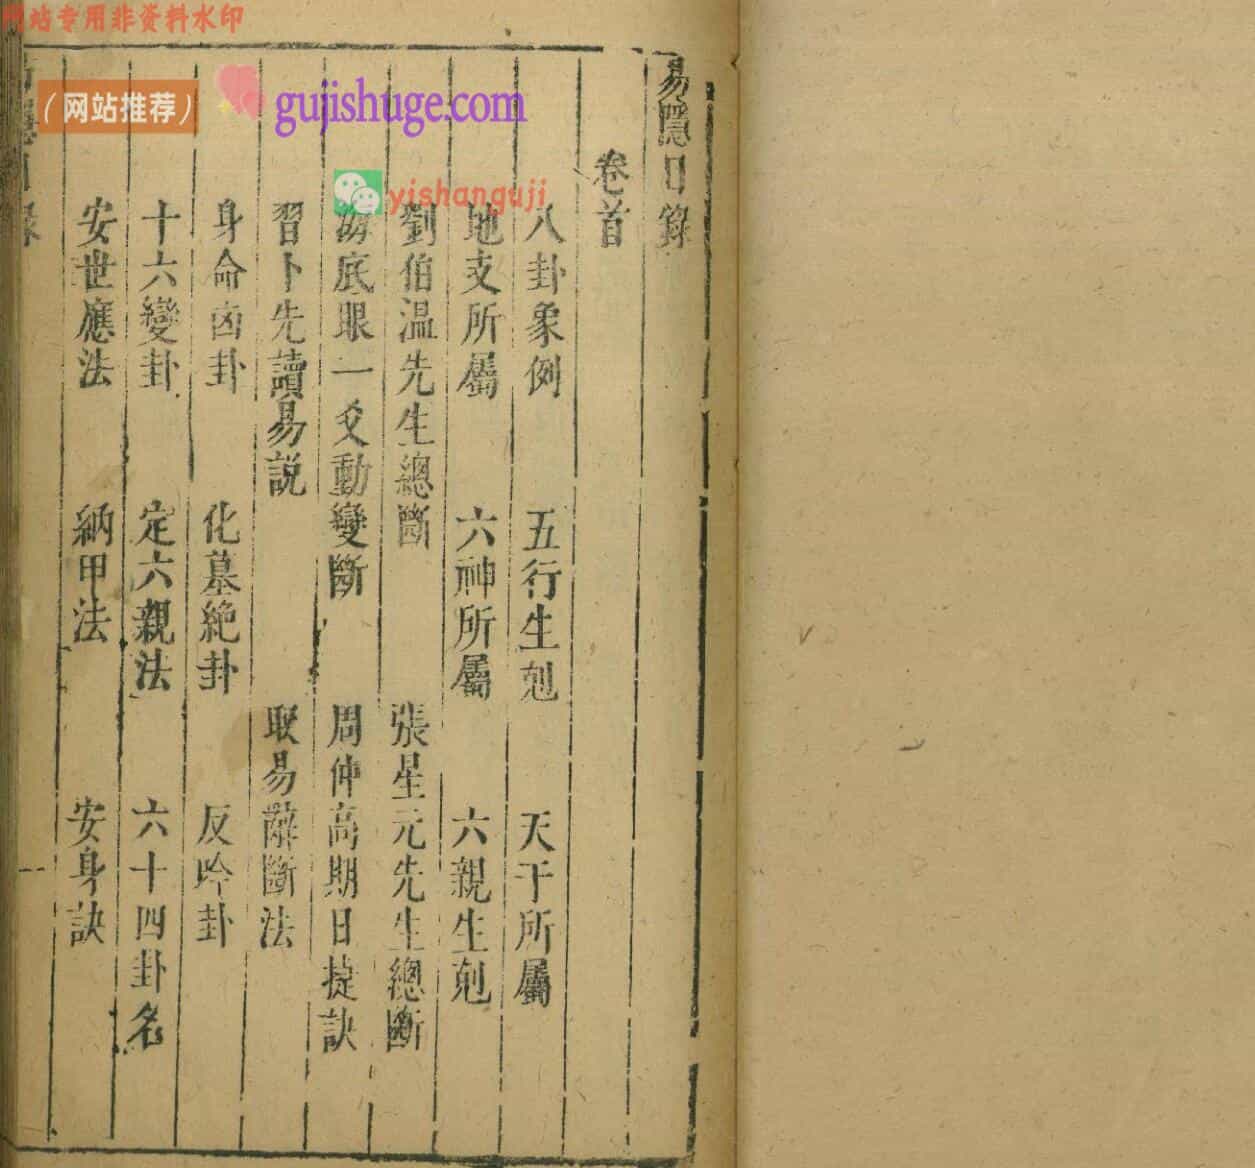 网站专用非资料水印
(网站推荐)
gujishuge.com
yishanguji
易隱目錄
卷首
八卦象例 五行生剋 天干所屬
地支所屬 六神所屬 六親生剋
劉伯温先生總斷 張星元先生總断
海底眼一爻動變斷 周仲高期日捷訣
習卜先讀易説 取易辭斷法
身命凶卦 化墓絶卦 反吟卦
十六變卦 定六親法 六十四卦名
安世應法 納甲法 安身訣
一